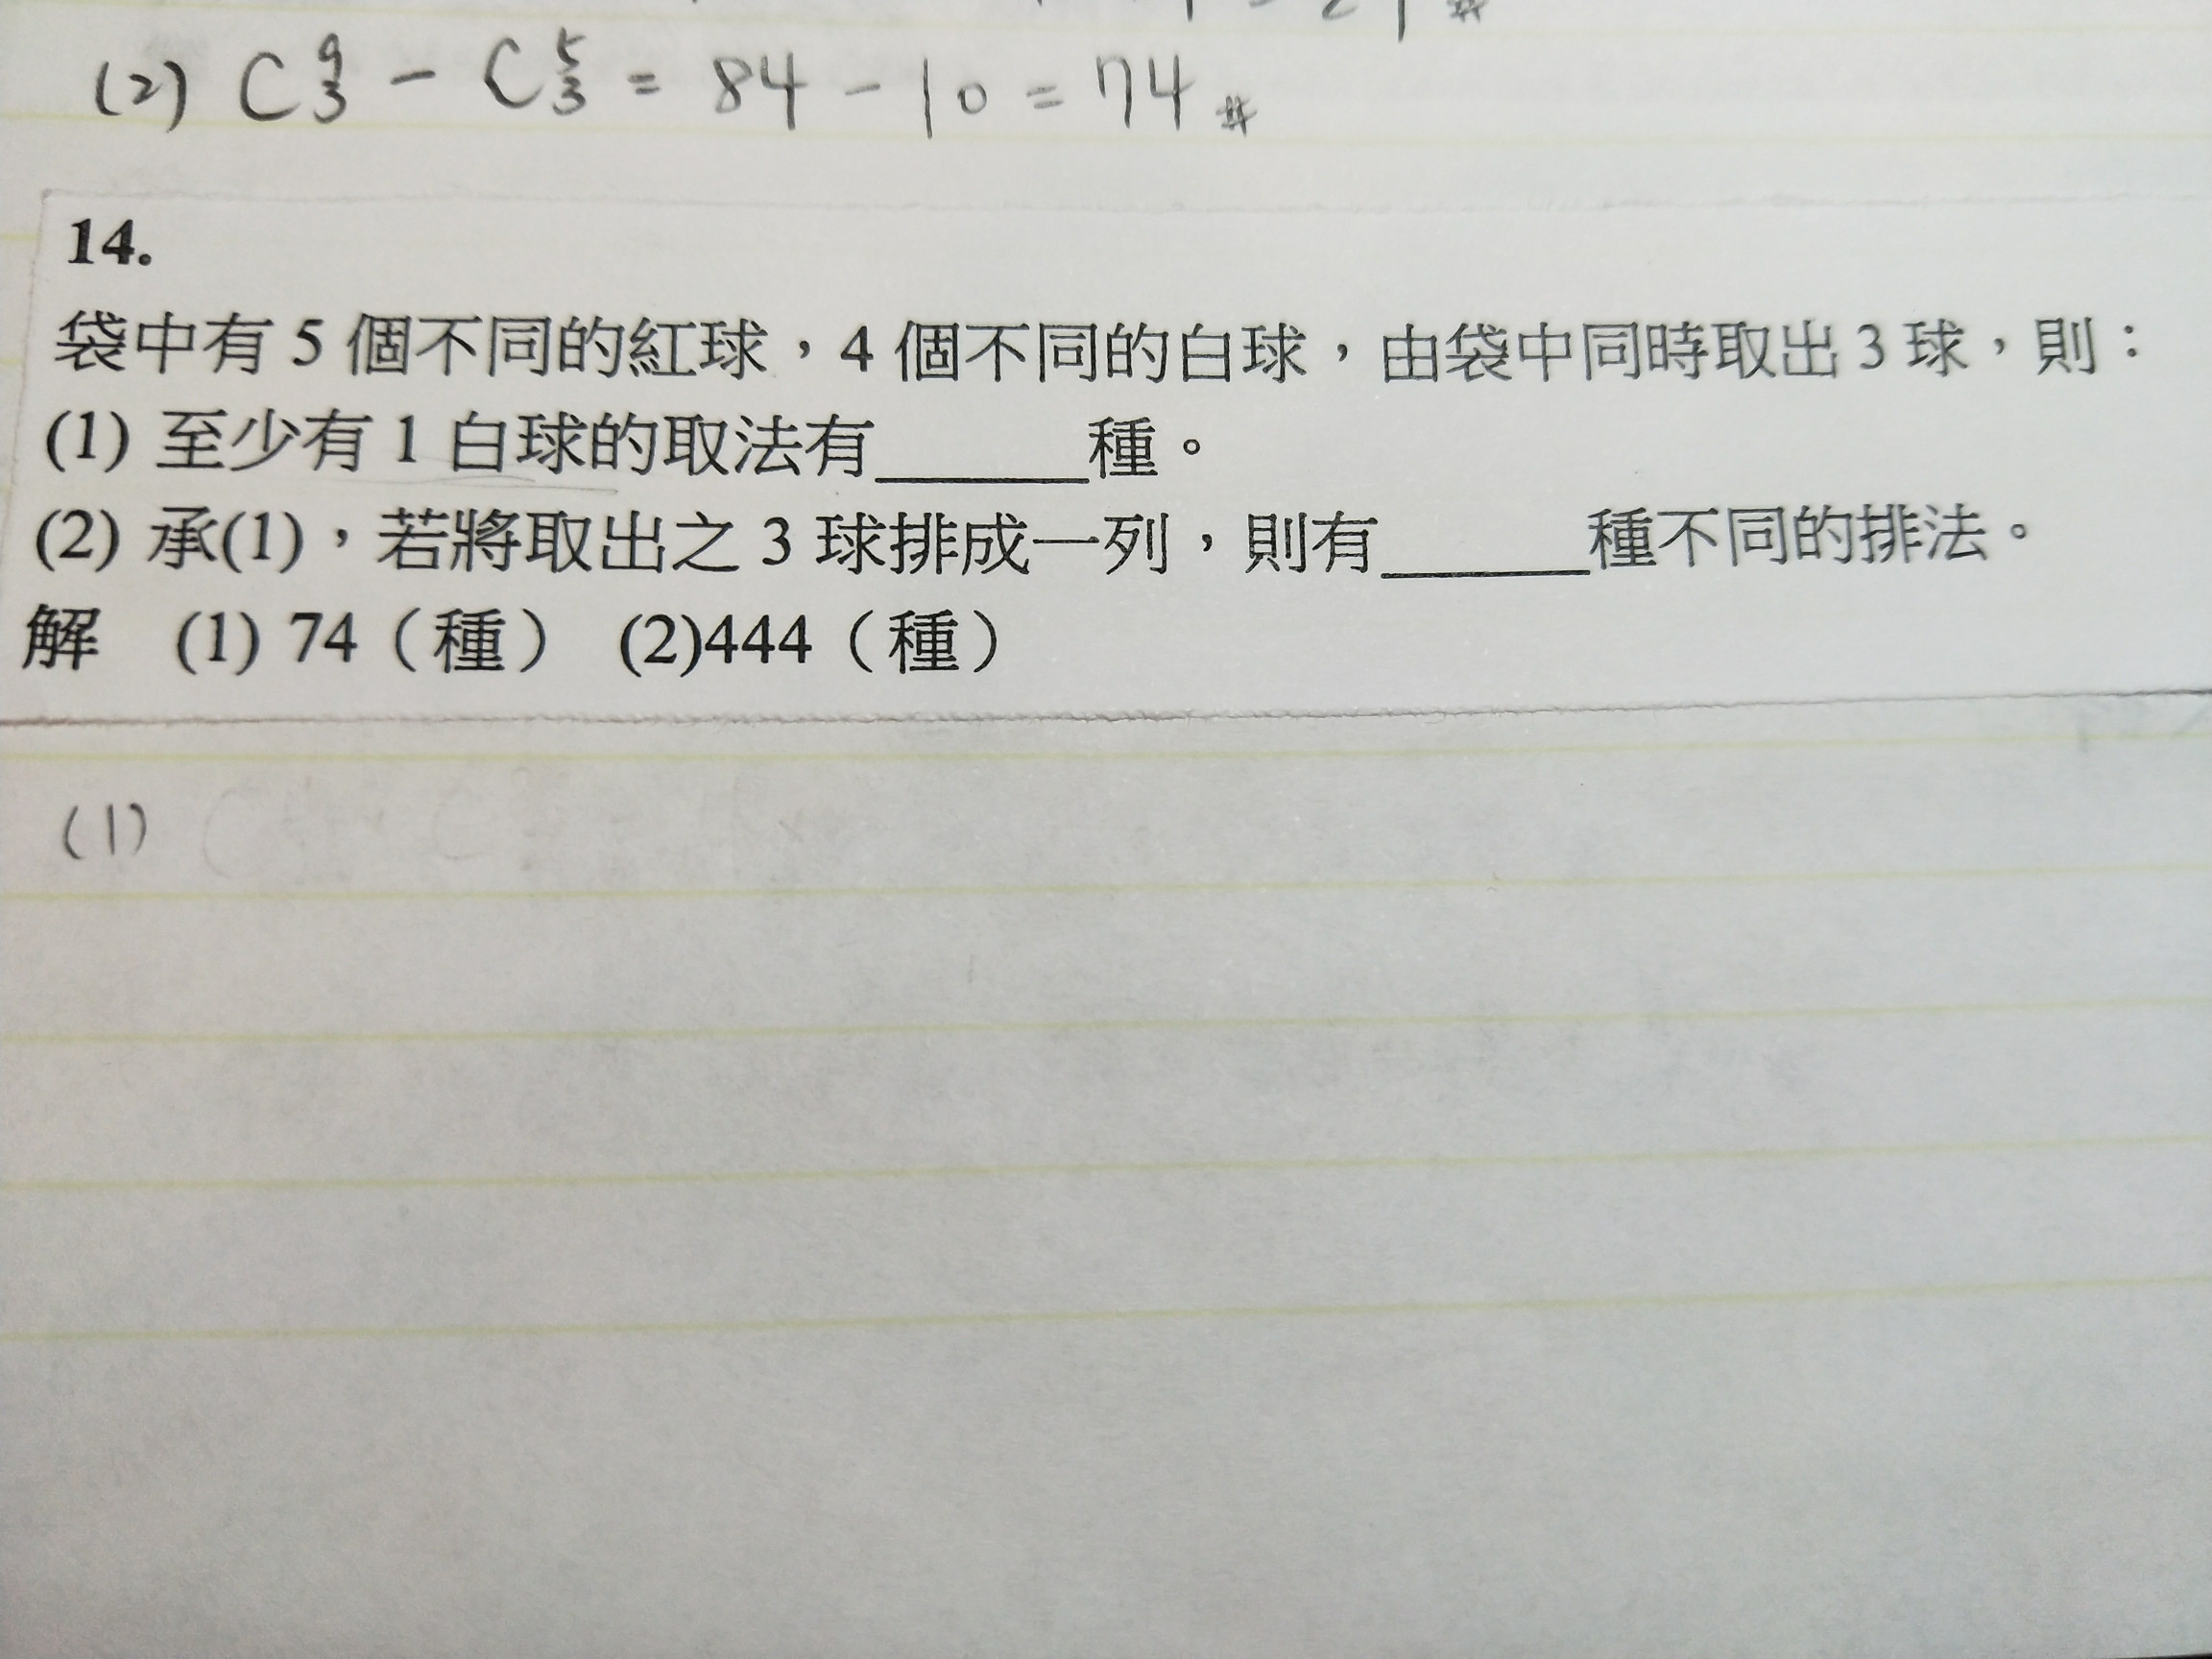 (2) C⁹₃ - C⁵₃ = 84 - 10 = 74 #
14.
袋中有 5 個不同的紅球，4 個不同的白球，由袋中同時取出 3 球，則：
(1) 至少有 1 白球的取法有______種。
(2) 承(1)，若將取出之 3 球排成一列，則有______種不同的排法。
解 (1) 74（種） (2)444（種）
(1)